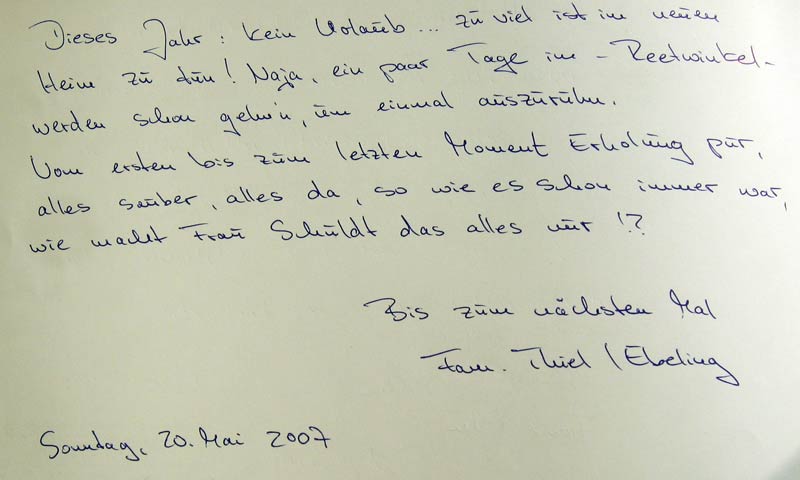 Dieses Jahr: kein Urlaub... zu viel ist im neuen
Heim zu tun! Naja, ein paar Tage im - Reetwinkel -
werden schon geh'n, um einmal auszuruhn.
Vom ersten bis zum letzten Moment Erholung pur,
alles sauber, alles da, so wie es schon immer war,
wie macht Frau Schuldt das alles nur!?
Bis zum nächsten Mal
Fam. Thiel / Ebeling
Sonntag, 20. Mai 2007